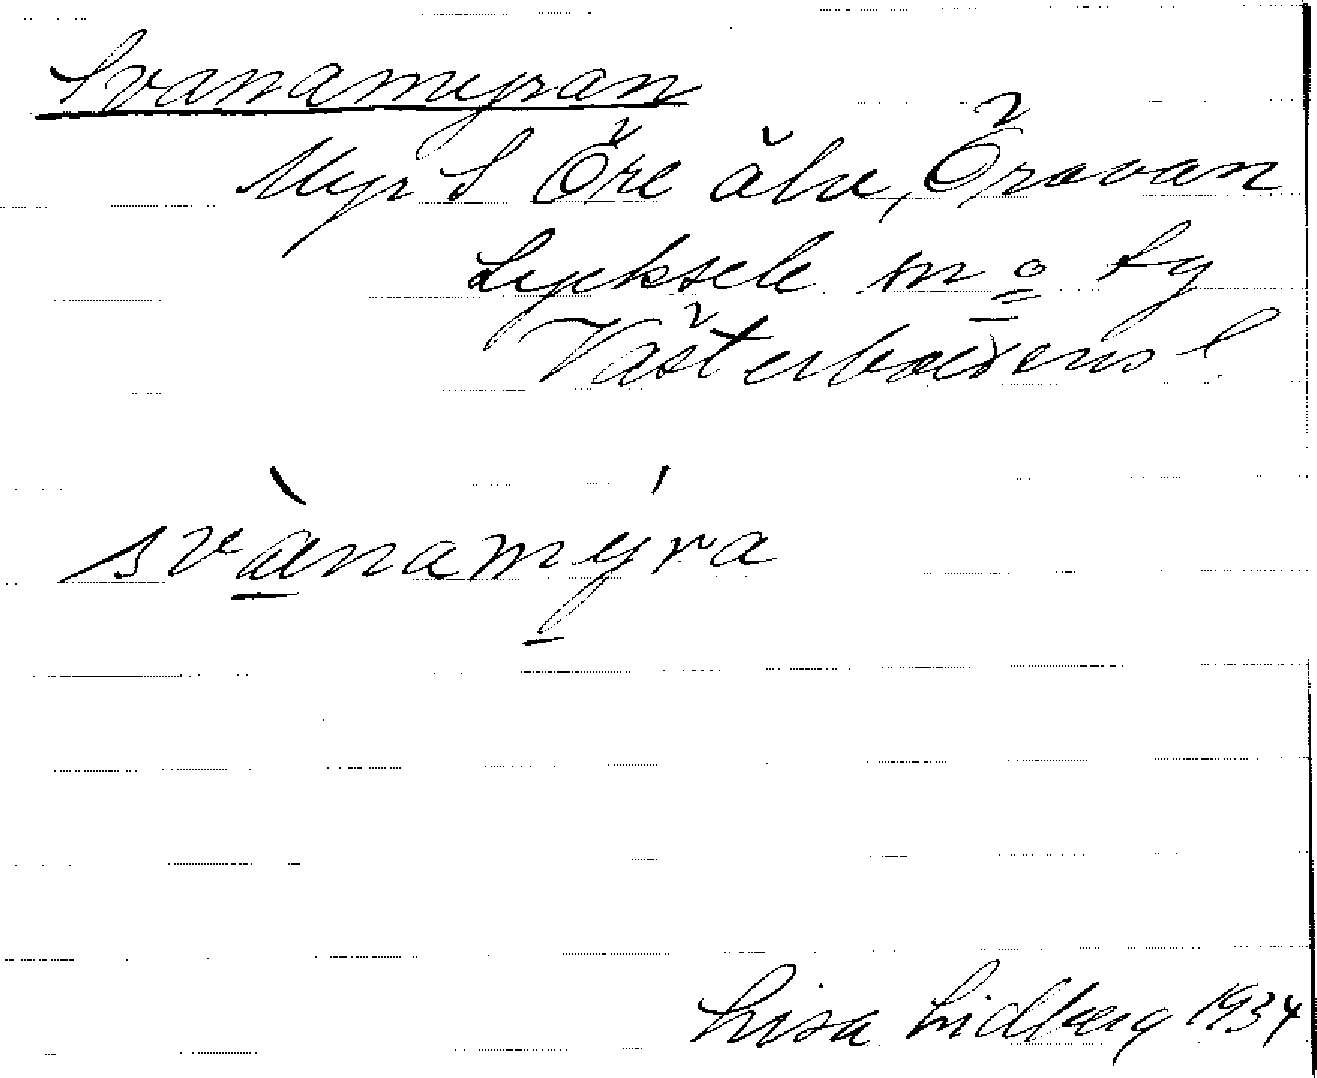 Svanamyran
Myr S Öre älv, Öravan
Lycksele sn o by
Västerbottens l
svànamýra
Lisa Lidberg 1934